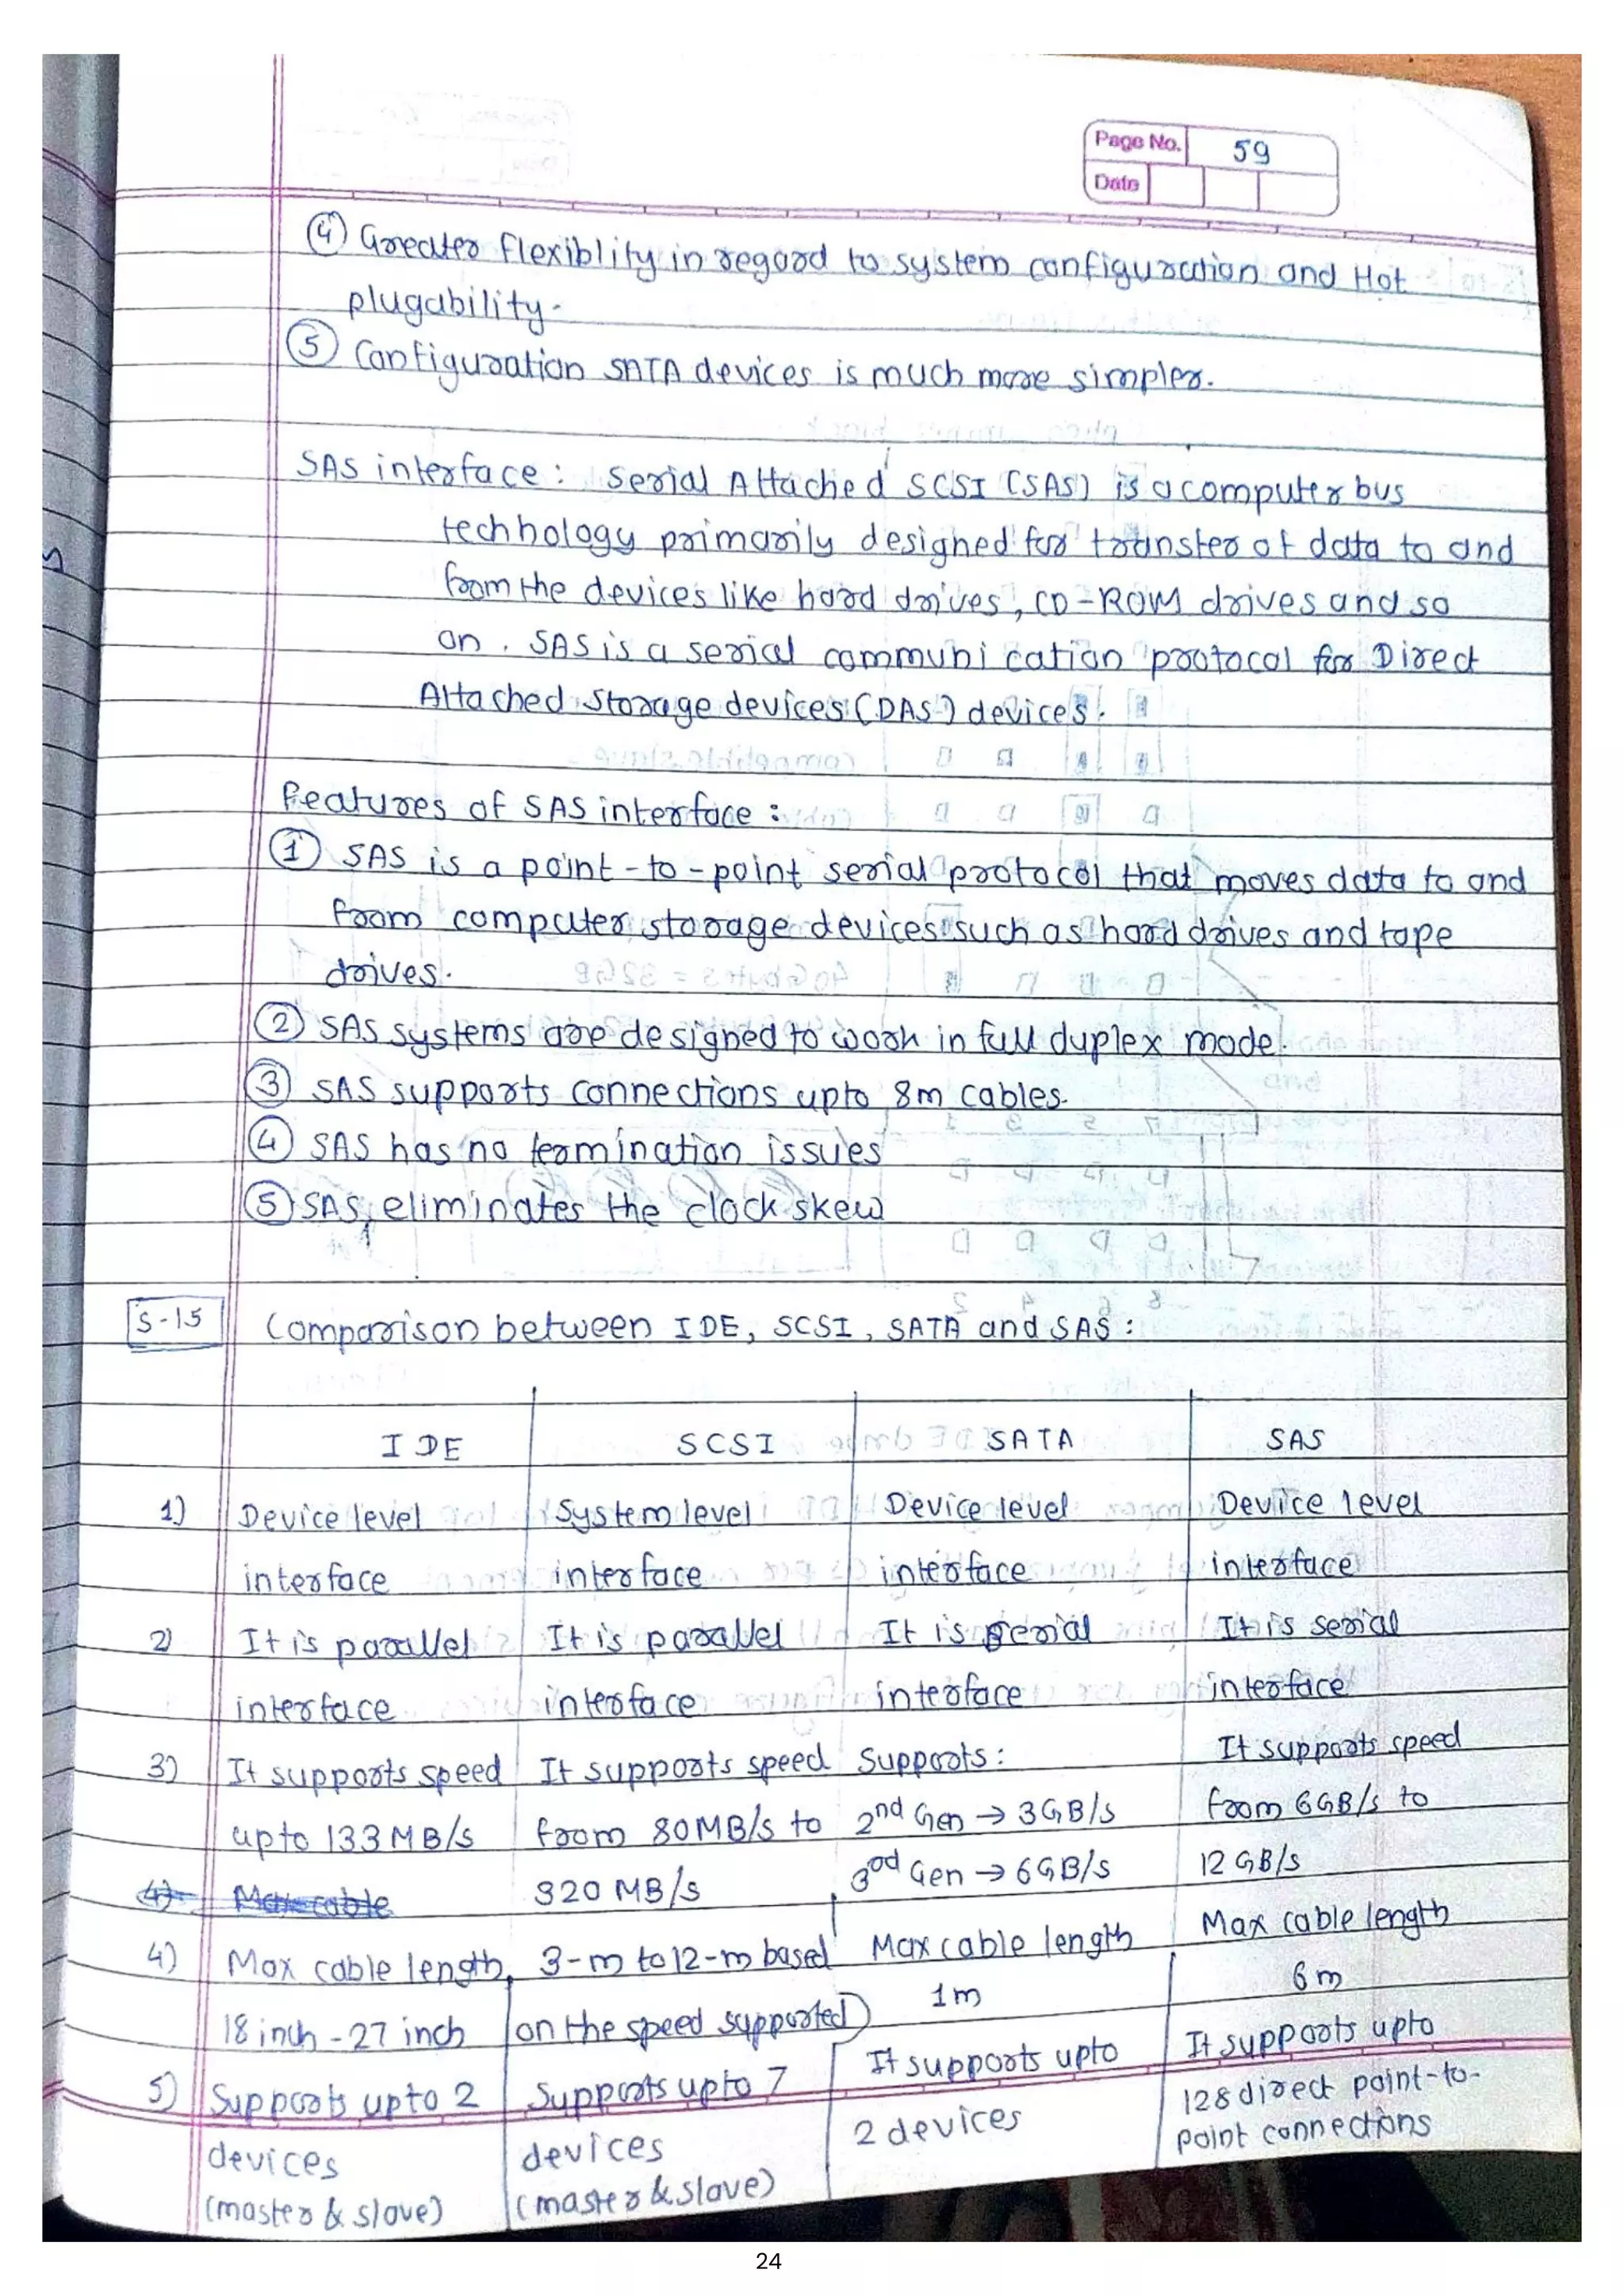 Page No. 59
Date
④ Greater flexiblity in regard to system configuration and Hot
plugability.
⑤ Configuration SATA devices is much more simpler.
SAS interface : Serial Attached SCSI (SAS) is a computer bus
technology primarily designed for transfer of data to and
from the devices like hard drives, CD-ROM drives and so
on. SAS is a serial communication protocol for Direct
Attached Storage devices (DAS) devices.
Features of SAS interface :
① SAS is a point-to-point serial protocol that moves data to and
from computer storage devices such as hard drives and tape
drives.
② SAS systems are designed to work in full duplex mode.
③ SAS supports connections upto 8m cables.
④ SAS has no termination issues
⑤ SAS eliminates the clock skew
S-15 Comparison between IDE, SCSI, SATA and SAS :
IDE SCSI SATA SAS
1) Device level System level Device level Device level
interface interface interface interface
2) It is parallel It is parallel It is serial It is serial
interface interface interface interface
3) It supports speed It supports speed Supports : It supports speed
upto 133 MB/s from 80MB/s to 2nd Gen → 3GB/s from 6GB/s to
320 MB/s 3rd Gen → 6GB/s 12 GB/s
4) Max cable
4) Max cable length 3-m to 12-m based Max cable length Max cable length
18 inch - 27 inch on the speed supported) 1m 6m
5) Supports upto 2 Supports upto 7 It supports upto It supports upto
devices devices 2 devices 128 direct point-to-
(master & slave) (master & slave) point connections
24